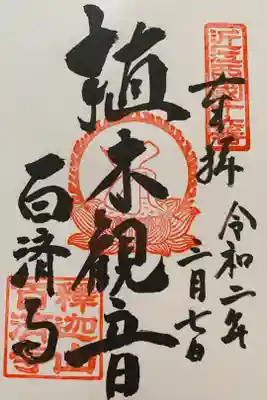 奉拝
令和二年
二月七日
植木観音
百済寺
釈迦山
百済寺